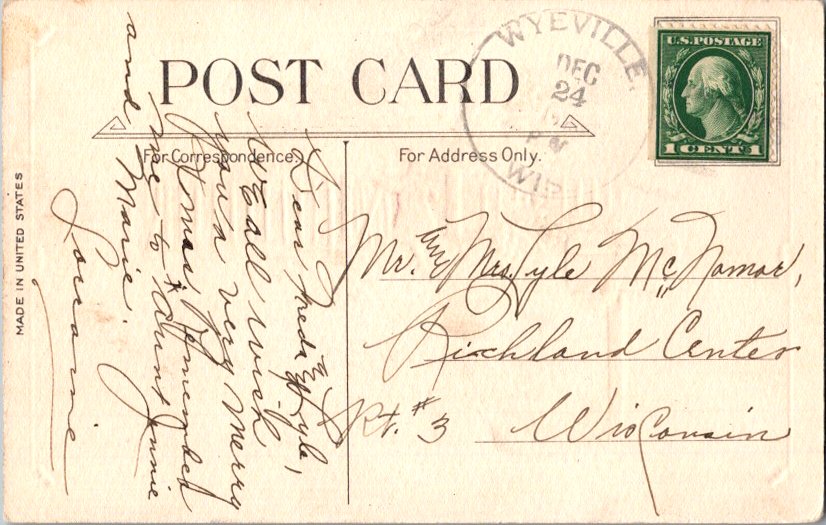 POST CARD
WYEVILLE,
DEC
24
WIS.
U.S. POSTAGE
1 CENT 1
For Correspondence.
For Address Only.
MADE IN UNITED STATES
Dear Freda & Lyle,
We all wish
you a very Merry
Xmas, Remember
me to Aunt Jennie
and Marie.
Lorraine
Mr. and Mrs. Lyle McNamar,
Richland Center
Rt. #3 Wisconsin